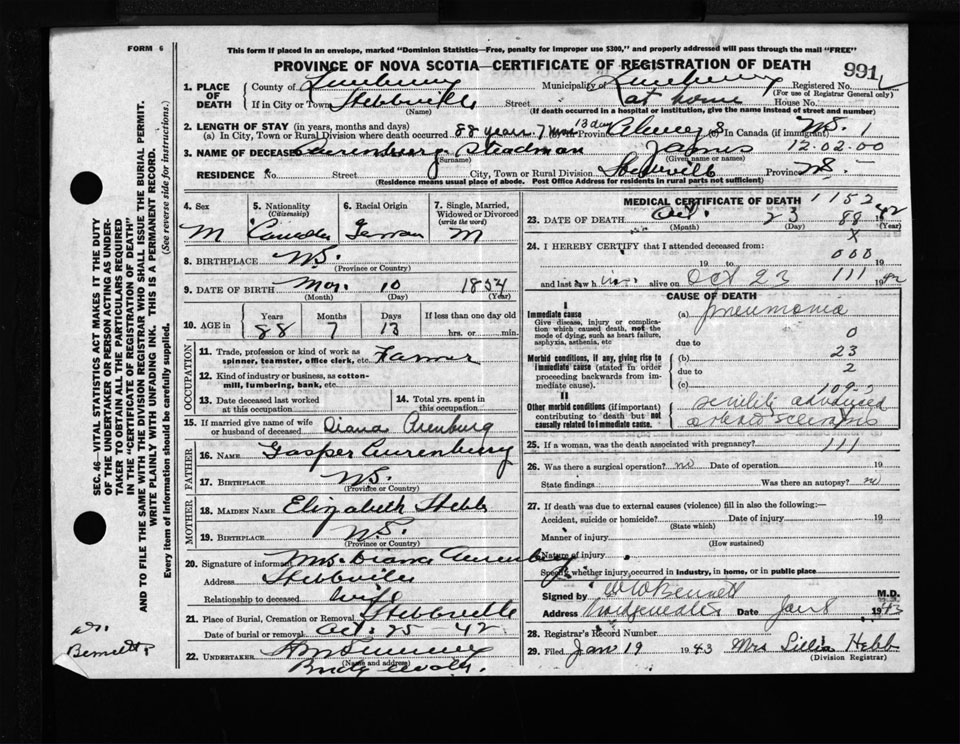 FORM 6
This form if placed in an envelope, marked "Dominion Statistics—Free, penalty for improper use $300," and properly addressed will pass through the mail "FREE"
PROVINCE OF NOVA SCOTIA—CERTIFICATE OF REGISTRATION OF DEATH
991
1. PLACE OF DEATH
County of Lunenburg Municipality of Lunenburg Registered No.
(For use of Registrar General only)
If in City or Town Hebbville Street at home House No.
(Name) (If death occurred in a hospital or institution, give the name instead of street and number)
2. LENGTH OF STAY (in years, months and days)
(a) In City, Town or Rural Division where death occurred 88 years 7 mos 13 days Province Always (c) In Canada (if immigrant) N.S. 1
3. NAME OF DECEASED Steadman James 12.02.00
(Surname) (Given name or names)
RESIDENCE No. Street City, Town or Rural Division Hebbville Province N.S.
(Residence means usual place of abode. Post Office Address for residents in rural parts not sufficient)
4. Sex
M
5. Nationality (Citizenship)
Canadian
6. Racial Origin
German
7. Single, Married, Widowed or Divorced (write the word)
M
8. BIRTHPLACE N.S.
(Province or Country)
9. DATE OF BIRTH Mar. 10 1854
(Month) (Day) (Year)
10. AGE in
Years Months Days If less than one day old
88 7 13 hrs. or min.
OCCUPATION
11. Trade, profession or kind of work as spinner, teamster, office clerk, etc. Farmer
12. Kind of industry or business, as cotton-mill, lumbering, bank, etc.
13. Date deceased last worked at this occupation
14. Total yrs. spent in this occupation
15. If married give name of wife or husband of deceased Diana Arenburg
FATHER
16. NAME Gasper
17. BIRTHPLACE N.S.
(Province or Country)
MOTHER
18. MAIDEN NAME Elizabeth Hebb
19. BIRTHPLACE N.S.
(Province or Country)
20. Signature of informant Mrs. Diana
Address Hebbville
Relationship to deceased Wife
21. Place of Burial, Cremation or Removal Hebbville
Date of burial or removal Oct. 25 42
22. UNDERTAKER
(Name and address)
MEDICAL CERTIFICATE OF DEATH 1152
23. DATE OF DEATH Oct. 23 88 42
(Month) (Day) (Year)
X
24. I HEREBY CERTIFY that I attended deceased from:
000
19 to 19
111
and last saw him alive on Oct 23 1942
CAUSE OF DEATH
I
Immediate cause
Give disease, injury or complication which caused death, not the mode of dying, such as heart failure, asphyxia, asthenia, etc.
(a) pneumonia
0
due to
Morbid conditions, if any, giving rise to immediate cause (stated in order proceeding backwards from immediate cause).
(b) 23
due to 2
(c) 109-
II
Other morbid conditions (if important) contributing to death but not causally related to immediate cause.
senility advanced
25. If a woman, was the death associated with pregnancy? 111
26. Was there a surgical operation? no Date of operation 19
State findings Was there an autopsy? no
27. If death was due to external causes (violence) fill in also the following:—
Accident, suicide or homicide? Date of injury 19
(State which)
Manner of injury
(How sustained)
Nature of injury
Specify whether injury occurred in industry, in home, or in public place
Signed by W W Bennett M.D.
Address Date Jan 8 1943
28. Registrar's Record Number
29. Filed Jan 19 1943 Mrs Lillia Hebb
(Division Registrar)
SEC. 46—VITAL STATISTICS ACT MAKES IT THE DUTY OF THE UNDERTAKER OR PERSON ACTING AS UNDERTAKER TO OBTAIN ALL THE PARTICULARS REQUIRED IN THE "CERTIFICATE OF REGISTRATION OF DEATH"
AND TO FILE THE SAME WITH THE DIVISION REGISTRAR WHO SHALL ISSUE THE BURIAL PERMIT.
WRITE PLAINLY WITH UNFADING INK. THIS IS A PERMANENT RECORD.
Every item of information should be carefully supplied. (See reverse side for instructions.)
Dr.
Bennett